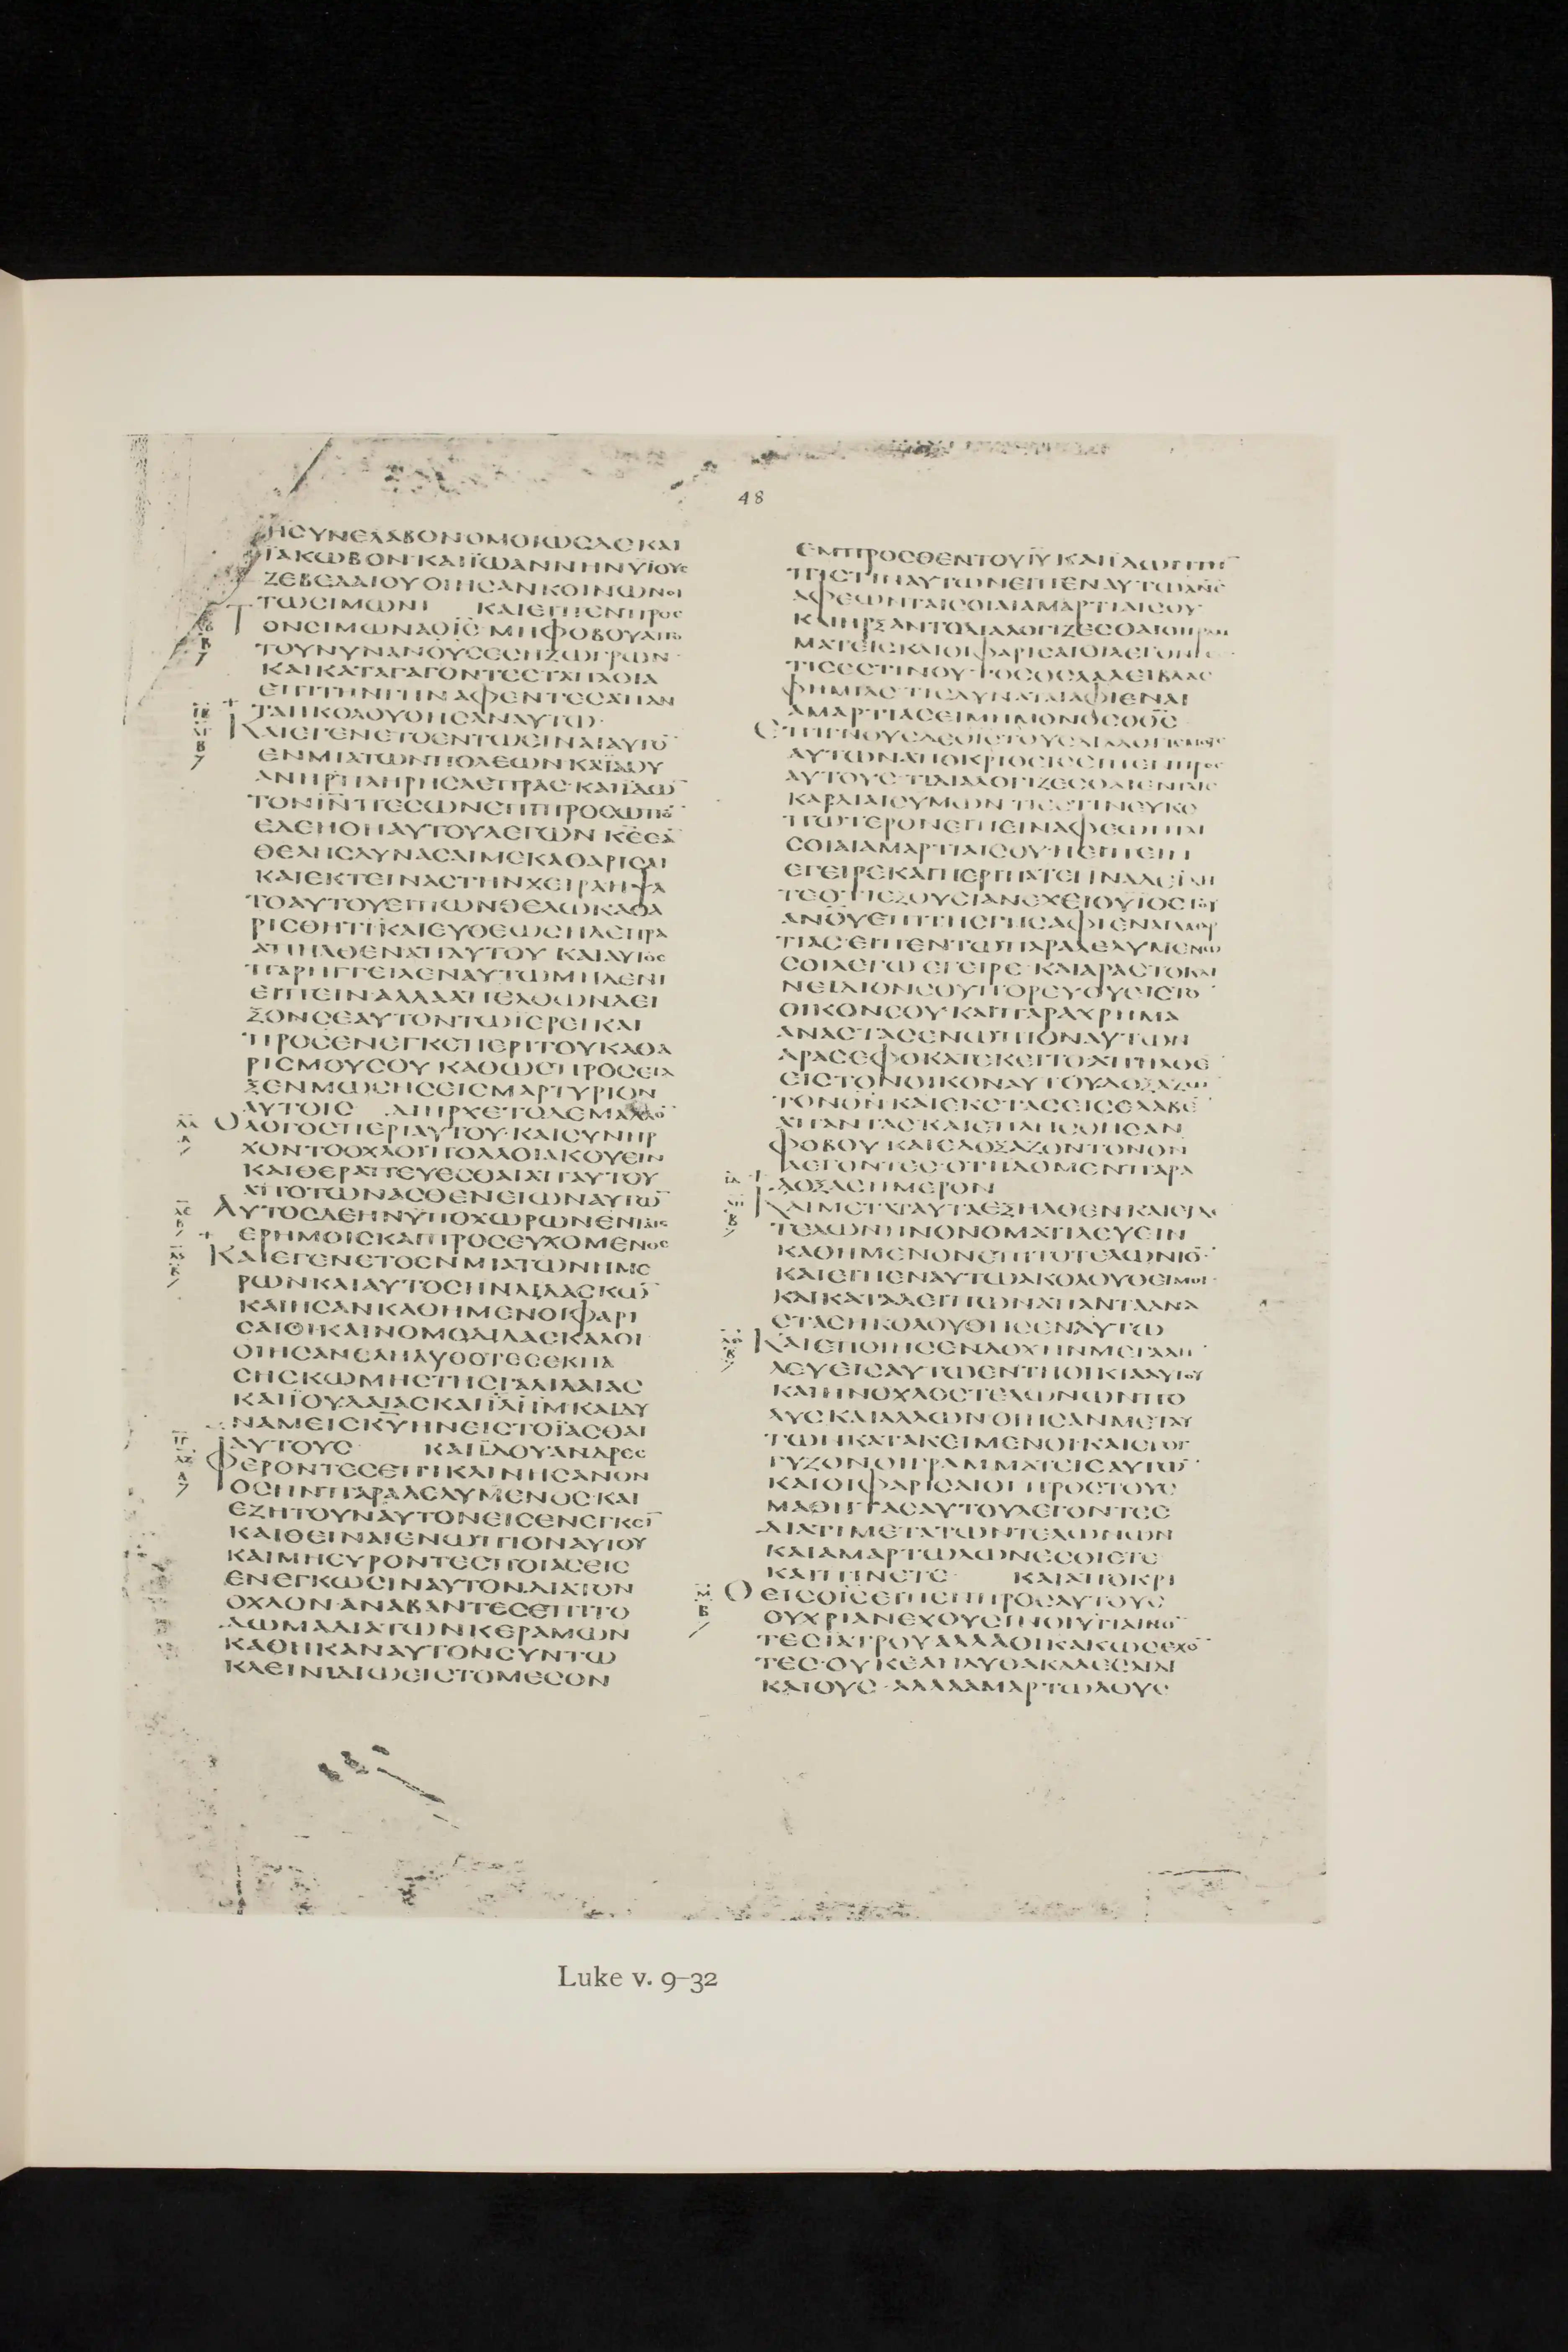 48
ΗСΥΝΕΛΑΒΟΝΟΜΟΙΩСΔΕΚΑΙ
ΪΑΚΩΒΟΝ·ΚΑΙΪΩΑΝΝΗΝΥΪΟΥС
ΖΕΒΕΔΑΙΟΥΟΙΗСΑΝΚΟΙΝΩΝΟΙ
ΤΩСΙΜΩΝΙ ΚΑΙΕΙΠΕΝΠΡΟС
ΤΟΝСΙΜΩΝΑΟΙ̅С̅ ΜΗΦΟΒΟΥΑΠΟ
ΤΟΥΝΥΝΑΝΟΥСΕСΗΖΩΓΡΩΝ·
ΚΑΙΚΑΤΑΓΑΓΟΝΤΕСΤΑΠΛΟΙΑ
ΕΠΙΤΗΝΓΗΝΑΦΕΝΤΕСΑΠΑΝ
ΤΑΗΚΟΛΟΥΘΗСΑΝΑΥΤΩ·
ΚΑΙΕΓΕΝΕΤΟΕΝΤΩΕΙΝΑΙΑΥΤΟ̅
ΕΝΜΙΑΤΩΝΠΟΛΕΩΝΚΑΙΪΔΟΥ
ΑΝΗΡΠΛΗΡΗСΛΕΠΡΑС·ΚΑΙΪΔΩ̅
ΤΟΝΙ̅Ν̅ΠΕСΩΝΕΠΙΠΡΟСΩΠΟ̅
ΕΔΕΗΘΗΑΥΤΟΥΛΕΓΩΝ Κ̅Ε̅ΕΑ̅
ΘΕΛΗСΔΥΝΑСΑΙΜΕΚΑΘΑΡΙСΑΙ
ΚΑΙΕΚΤΕΙΝΑСΤΗΝΧΕΙΡΑΗΨΑ
ΤΟΑΥΤΟΥΕΙΠΩΝΘΕΛΩΚΑΘΑ
ΡΙСΘΗΤΙΚΑΙΕΥΘΕΩСΗΛΕΠΡΑ
ΑΠΗΛΘΕΝΑΠΑΥΤΟΥ ΚΑΙΑΥΤΟС
ΠΑΡΗΓΓΕΙΛΕΝΑΥΤΩΜΗΔΕΝΙ
ΕΙΠΕΙΝ·ΑΛΛΑΑΠΕΛΘΩΝΔΕΙ
ΞΟΝСΕΑΥΤΟΝΤΩΪΕΡΕΙΚΑΙ
ΠΡΟСΕΝΕΓΚΕΠΕΡΙΤΟΥΚΑΘΑ
ΡΙСΜΟΥСΟΥ ΚΑΘΩСΠΡΟСΕΤΑ
ΞΕΝΜΩСΗСΕΙСΜΑΡΤΥΡΙΟΝ
ΑΥΤΟΙС ΔΙΗΡΧΕΤΟΔΕΜΑΛΛΟ̅
ΟΛΟΓΟСΠΕΡΙΑΥΤΟΥ·ΚΑΙСΥΝΗΡ
ΧΟΝΤΟΟΧΛΟΙΠΟΛΛΟΙΑΚΟΥΕΙΝ
ΚΑΙΘΕΡΑΠΕΥΕСΘΑΙΑΠΑΥΤΟΥ
ΑΠΟΤΩΝΑСΘΕΝΕΙΩΝΑΥΤΩ̅
ΑΥΤΟСΔΕΗΝΫΠΟΧΩΡΩΝΕΝΤΑΙС
ΕΡΗΜΟΙСΚΑΙΠΡΟСΕΥΧΟΜΕΝΟС
ΚΑΙΕΓΕΝΕΤΟΕΝΜΙΑΤΩΝΗΜΕ
ΡΩΝΚΑΙΑΥΤΟСΗΝΔΙΔΑСΚΩ̅
ΚΑΙΗСΑΝΚΑΘΗΜΕΝΟΙΦΑΡΙ
СΑΙΟΙΚΑΙΝΟΜΟΔΙΔΑСΚΑΛΟΙ
ΟΙΗСΑΝΕΛΗΛΥΘΟΤΕСΕΚΠΑ
СΗСΚΩΜΗСΤΗСΓΑΛΙΛΑΙΑС
ΚΑΙΪΟΥΔΑΙΑСΚΑΙΪΛΗ̅Μ̅ΚΑΙΔΥ
ΝΑΜΕΙСΚ̅Υ̅ΗΝΕΙСΤΟΪΑСΘΑΙ
ΑΥΤΟΥС ΚΑΙΪΔΟΥΑΝΔΡΕС
ΦΕΡΟΝΤΕСΕΠΙΚΛΙΝΗСΑΝΟΝ
ΟСΗΝΠΑΡΑΛΕΛΥΜΕΝΟС·ΚΑΙ
ΕΖΗΤΟΥΝΑΥΤΟΝΕΙСΕΝΕΓΚΕΙ̅
ΚΑΙΘΕΙΝΑΙΕΝΩΠΙΟΝΑΥΤΟΥ
ΚΑΙΜΗΕΥΡΟΝΤΕСΠΟΙΑСΕΙС
ΕΝΕΓΚΩСΙΝΑΥΤΟΝ.ΔΙΑΤΟΝ
ΟΧΛΟΝ·ΑΝΑΒΑΝΤΕСΕΠΙΤΟ
ΔΩΜΑΔΙΑΤΩΝΚΕΡΑΜΩΝ
ΚΑΘΗΚΑΝΑΥΤΟΝСΥΝΤΩ
ΚΛΕΙΝΙΔΙΩΕΙСΤΟΜΕСΟΝ
ΕΜΠΡΟСΘΕΝΤΟΥΙ̅Υ̅ ΚΑΙΪΔΩΝΤΗ̅
ΠΙСΤΙΝΑΥΤΩΝΕΙΠΕΝΑΥΤΩΑΝ̅Ε̅
ΑΦΕΩΝΤΑΙСΟΙΑΙΑΜΑΡΤΙΑΙСΟΥ
ΚΑΙΗΡΞΑΝΤΟΔΙΑΛΟΓΙΖΕСΘΑΙΟΙΓΡΑΜ
ΜΑΤΕΙСΚΑΙΟΙΦΑΡΙСΑΙΟΙΛΕΓΟΝΤΕС
ΤΙСΕСΤΙΝΟΥΤΟСΟСΛΑΛΕΙΒΛΑС
ΦΗΜΙΑС·ΤΙСΔΥΝΑΤΑΙΑΦΙΕΝΑΙ
ΑΜΑΡΤΙΑСΕΙΜΗΜΟΝΟСΟΘ̅С̅
ΕΠΙΓΝΟΥСΔΕΟΙСΤΟΥСΔΙΑΛΟΓΙСΜΟΥС
ΑΥΤΩΝΑΠΟΚΡΙΘΕΙСΕΙΠΕΝΠΡΟС
ΑΥΤΟΥС·ΤΙΔΙΑΛΟΓΙΖΕСΘΑΙΕΝΤΑΙС
ΚΑΡΔΙΑΙСΥΜΩΝ ΤΙΕСΤΙΝΕΥΚΟ
ΠΩΤΕΡΟΝΕΙΠΕΙΝΑΦΕΩΝΤΑΙ
СΟΙΑΙΑΜΑΡΤΙΑΙСΟΥ·ΗΕΙΠΕΙΝ
ΕΓΕΙΡΕΚΑΙΠΕΡΙΠΑΤΕΙΙΝΑΔΕΙΔΗ
ΤΕΟΤΙΕΞΟΥСΙΑΝΕΧΕΙΟΥΙΟСΤΟΥ
ΑΝΟΥ̅ΕΠΙΤΗСΓΗСΑΦΙΕΝΑΙΑΜΑΡ
ΤΙΑС·ΕΙΠΕΝΤΩΠΑΡΑΛΕΛΥΜΕΝΩ
СΟΙΛΕΓΩ ΕΓΕΙΡΕ·ΚΑΙΑΡΑСΤΟΚΛΙ
ΝΕΙΔΙΟΝСΟΥΠΟΡΕΥΟΥΕΙСΤΟ̅
ΟΙΚΟΝСΟΥ ΚΑΙΠΑΡΑΧΡΗΜΑ
ΑΝΑСΤΑСΕΝΩΠΙΟΝΑΥΤΩΝ
ΑΡΑСΕΦΟΚΑΤΕΚΕΙΤΟΑΠΗΛΘΕ̅
ΕΙСΤΟΝΟΙΚΟΝΑΥΤΟΥΔΟΞΑΖΩ̅
ΤΟΝΘ̅Ν̅·ΚΑΙΕΚСΤΑСΕΙСΕΛΑΒΕ̅
ΑΠΑΝΤΑС·ΚΑΙΕΠΛΗСΘΗСΑΝ
ΦΟΒΟΥ ΚΑΙΕΔΟΞΑΖΟΝΤΟΝΘ̅Ν̅
ΛΕΓΟΝΤΕС·ΟΤΙΪΔΟΜΕΝΠΑΡΑ
ΔΟΞΑСΗΜΕΡΟΝ
ΚΑΙΜΕΤΑΤΑΥΤΑΕΞΗΛΘΕΝΚΑΙΕΙΔΕ
ΤΕΛΩΝΗΝΟΝΟΜΑΤΙΛΕΥΕΙΝ
ΚΑΘΗΜΕΝΟΝΕΠΙΤΟΤΕΛΩΝΙΟ̅·
ΚΑΙΕΙΠΕΝΑΥΤΩΑΚΟΛΟΥΘΕΙΜΟΙ·
ΚΑΙΚΑΤΑΛΕΙΠΩΝΑΠΑΝΤΑΑΝΑ
СΤΑСΗΚΟΛΟΥΘΗСΕΝΑΥΤΩ
ΚΑΙΕΠΟΙΗСΕΝΔΟΧΗΝΜΕΓΑΛΗ̅
ΛΕΥΕΙСΑΥΤΩΕΝΤΗΟΙΚΙΑΑΥΤΟΥ
ΚΑΙΗΝΟΧΛΟСΤΕΛΩΝΩΝΠΟ
ΛΥСΚΑΙΑΛΛΩΝ·ΟΙΗСΑΝΜΕΤΑΥ
ΤΩΝΚΑΤΑΚΕΙΜΕΝΟΙ·ΚΑΙΕΓΟΓ
ΓΥΖΟΝΟΙΓΡΑΜΜΑΤΕΙСΑΥΤΩ̅
ΚΑΙΟΙΦΑΡΙСΑΙΟΙ ΠΡΟСΤΟΥС
ΜΑΘΗΤΑСΑΥΤΟΥΛΕΓΟΝΤΕС
ΔΙΑΤΙΜΕΤΑΤΩΝΤΕΛΩΝΩΝ
ΚΑΙΑΜΑΡΤΩΛΩΝΕСΘΙΕΤΕ
ΚΑΙΠΙΝΕΤΕ ΚΑΙΑΠΟΚΡΙ
ΘΕΙСΟΙ̅С̅ΕΙΠΕΝΠΡΟСΑΥΤΟΥС
ΟΥΧΡΙΑΝΕΧΟΥСΙΝΟΙΥΓΙΑΙΝΟ̅
ΤΕСΪΑΤΡΟΥΑΛΛΑΟΙΚΑΚΩСΕΧΟ̅
ΤΕС·ΟΥΚΕΛΗΛΥΘΑΚΑΛΕСΑΙΔΙ
ΚΑΙΟΥС·ΑΛΛΑΑΜΑΡΤΩΛΟΥС
Luke v. 9–32